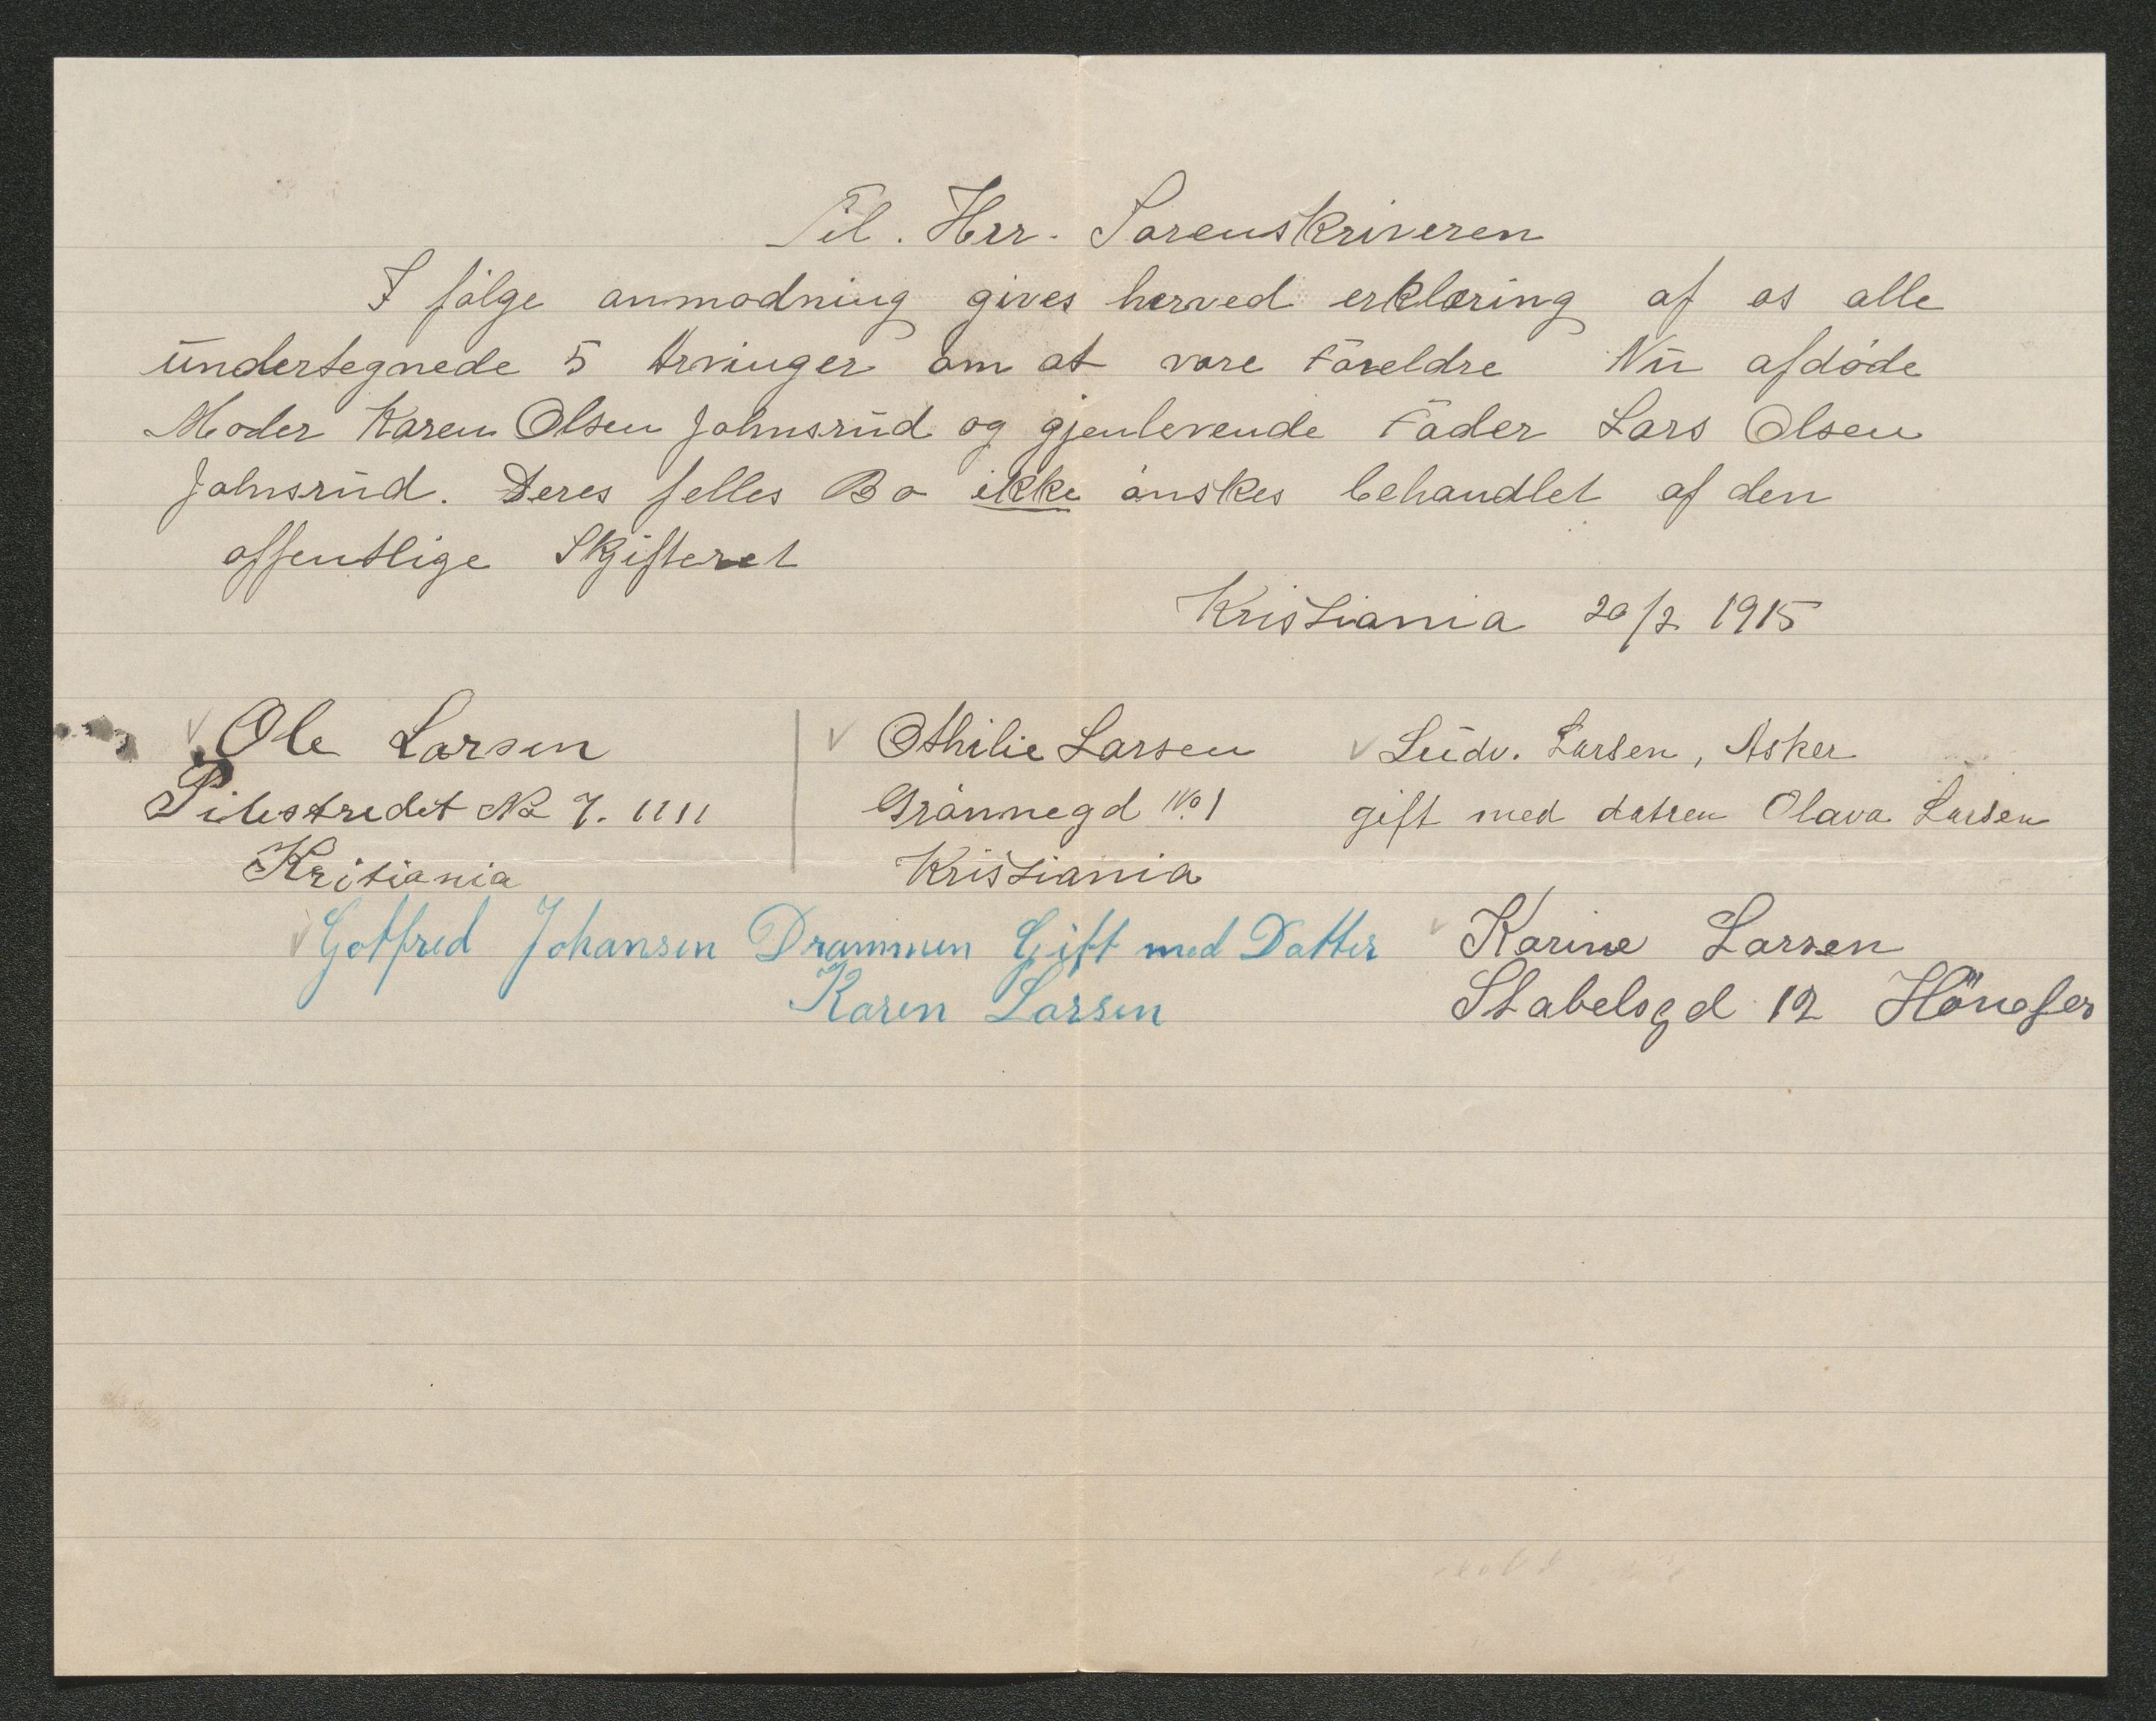 Til. Herr. Sorenskriveren
I følge anmodning gives herved erklæring af os alle
undertegnede 5 Arvinger om at vore Foreldre Nu afdøde
Moder Karen Olsen Johnsrud og gjenlevende Fader Lars Olsen
Johnsrud. Deres felles Bo ikke ønskes behandlet af den
offentlige Skjifteret
Kristiania 20/2 1915
Ole Larsen
Pilestredet No 7. IIII
Kritiania
Othilie Larsen
Grønnegd No. 1
Kristiania
Ludv. Larsen, Asker
gift med datren Olava Larsen
Gotfred Johansen Drammen Gift med Datter
Karen Larsen
Karine Larsen
Stabelsgd 12 Hönefos